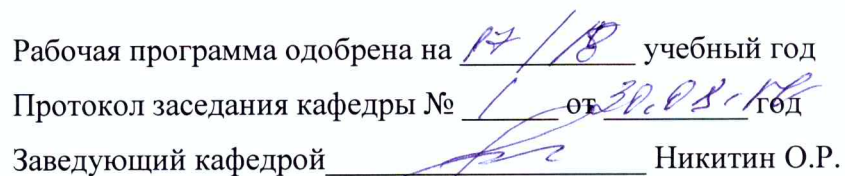 Рабочая программа одобрена на 17/18 учебный год
Протокол заседания кафедры № 1 от 30.08.17 год
Заведующий кафедрой Никитин О.Р.